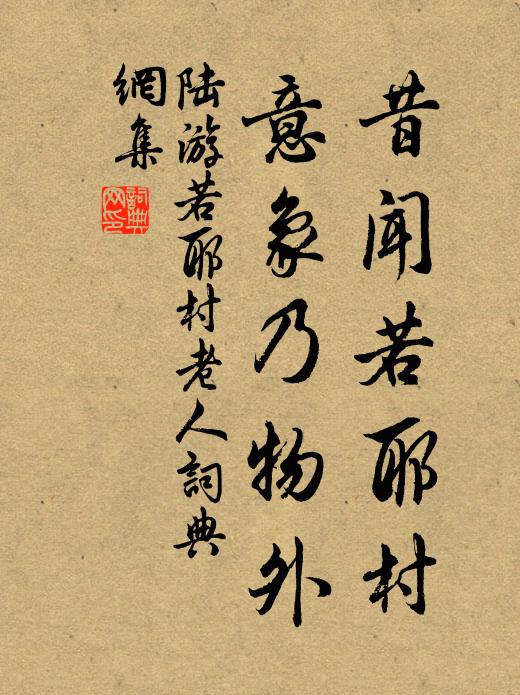 昔聞若耶村
意象乃物外
陆游若耶村老人詞典
網集
詞典
网印